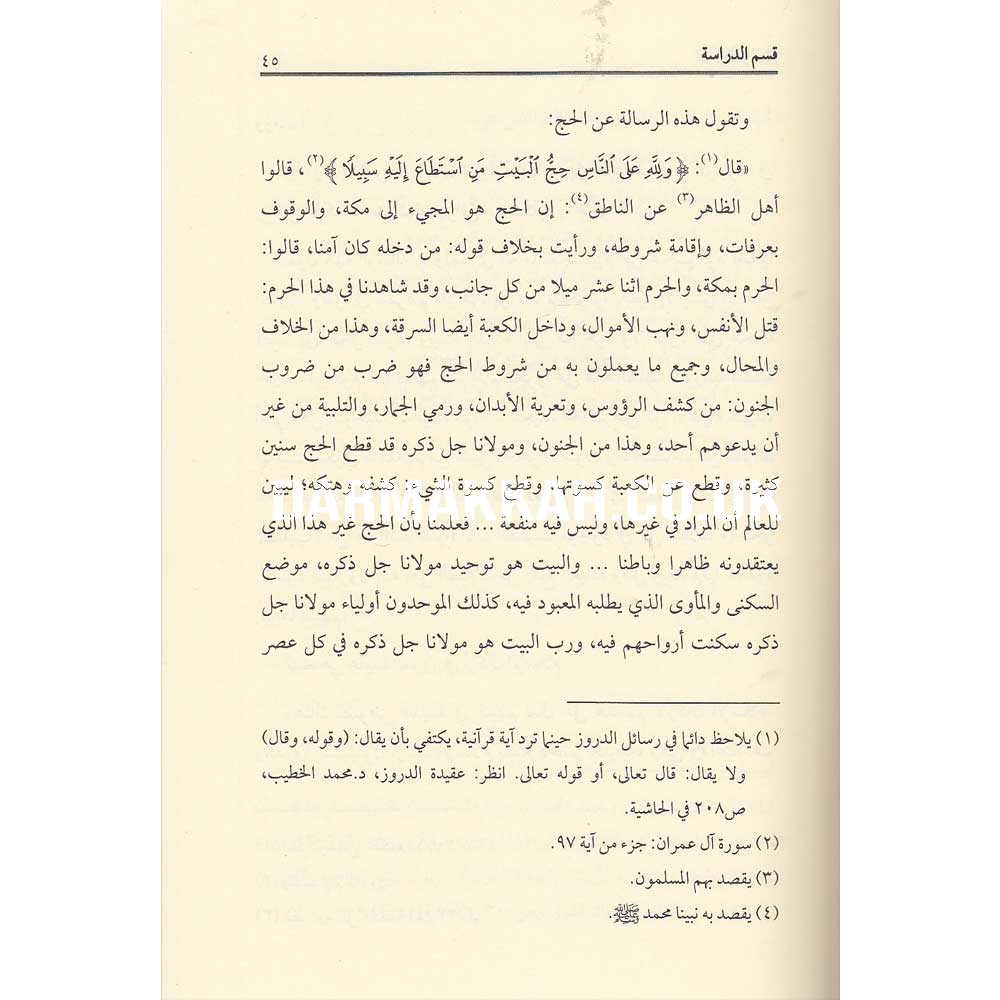 قسم الدراسة ٤٥
وتقول هذه الرسالة عن الحج:
«قال(١): ﴿وَلِلَّهِ عَلَى ٱلنَّاسِ حِجُّ ٱلْبَيْتِ مَنِ ٱسْتَطَاعَ إِلَيْهِ سَبِيلًا﴾(٢)، قالوا
أهل الظاهر(٣) عن الناطق(٤): إن الحج هو المجيء إلى مكة، والوقوف
بعرفات، وإقامة شروطه، ورأيت بخلاف قوله: من دخله كان آمنا، قالوا:
الحرم بمكة، والحرم اثنا عشر ميلا من كل جانب، وقد شاهدنا في هذا الحرم:
قتل الأنفس، ونهب الأموال، وداخل الكعبة أيضا السرقة، وهذا من الخلاف
والمحال، وجميع ما يعملون به من شروط الحج فهو ضرب من ضروب
الجنون: من كشف الرؤوس، وتعرية الأبدان، ورمي الجمار، والتلبية من غير
أن يدعوهم أحد، وهذا من الجنون، ومولانا جل ذكره قد قطع الحج سنين
كثيرة، وقطع عن الكعبة كسوتها، وقطع كسوة الشيء: كشفه وهتكه؛ ليبين
DARMAKKAH.CO.UK
للعالم أن المراد في غيرها، وليس فيه منفعة ... فعلمنا بأن الحج غير هذا الذي
يعتقدونه ظاهرا وباطنا ... والبيت هو توحيد مولانا جل ذكره، موضع
السكنى والمأوى الذي يطلبه المعبود فيه، كذلك الموحدون أولياء مولانا جل
ذكره سكنت أرواحهم فيه، ورب البيت هو مولانا جل ذكره في كل عصر
(١) يلاحظ دائما في رسائل الدروز حينما ترد آية قرآنية، يكتفي بأن يقال: (وقوله، وقال)
ولا يقال: قال تعالى، أو قوله تعالى. انظر: عقيدة الدروز، د.محمد الخطيب،
ص٢٠٨ في الحاشية.
(٢) سورة آل عمران: جزء من آية ٩٧.
(٣) يقصد بهم المسلمون.
(٤) يقصد به نبينا محمد ﷺ.